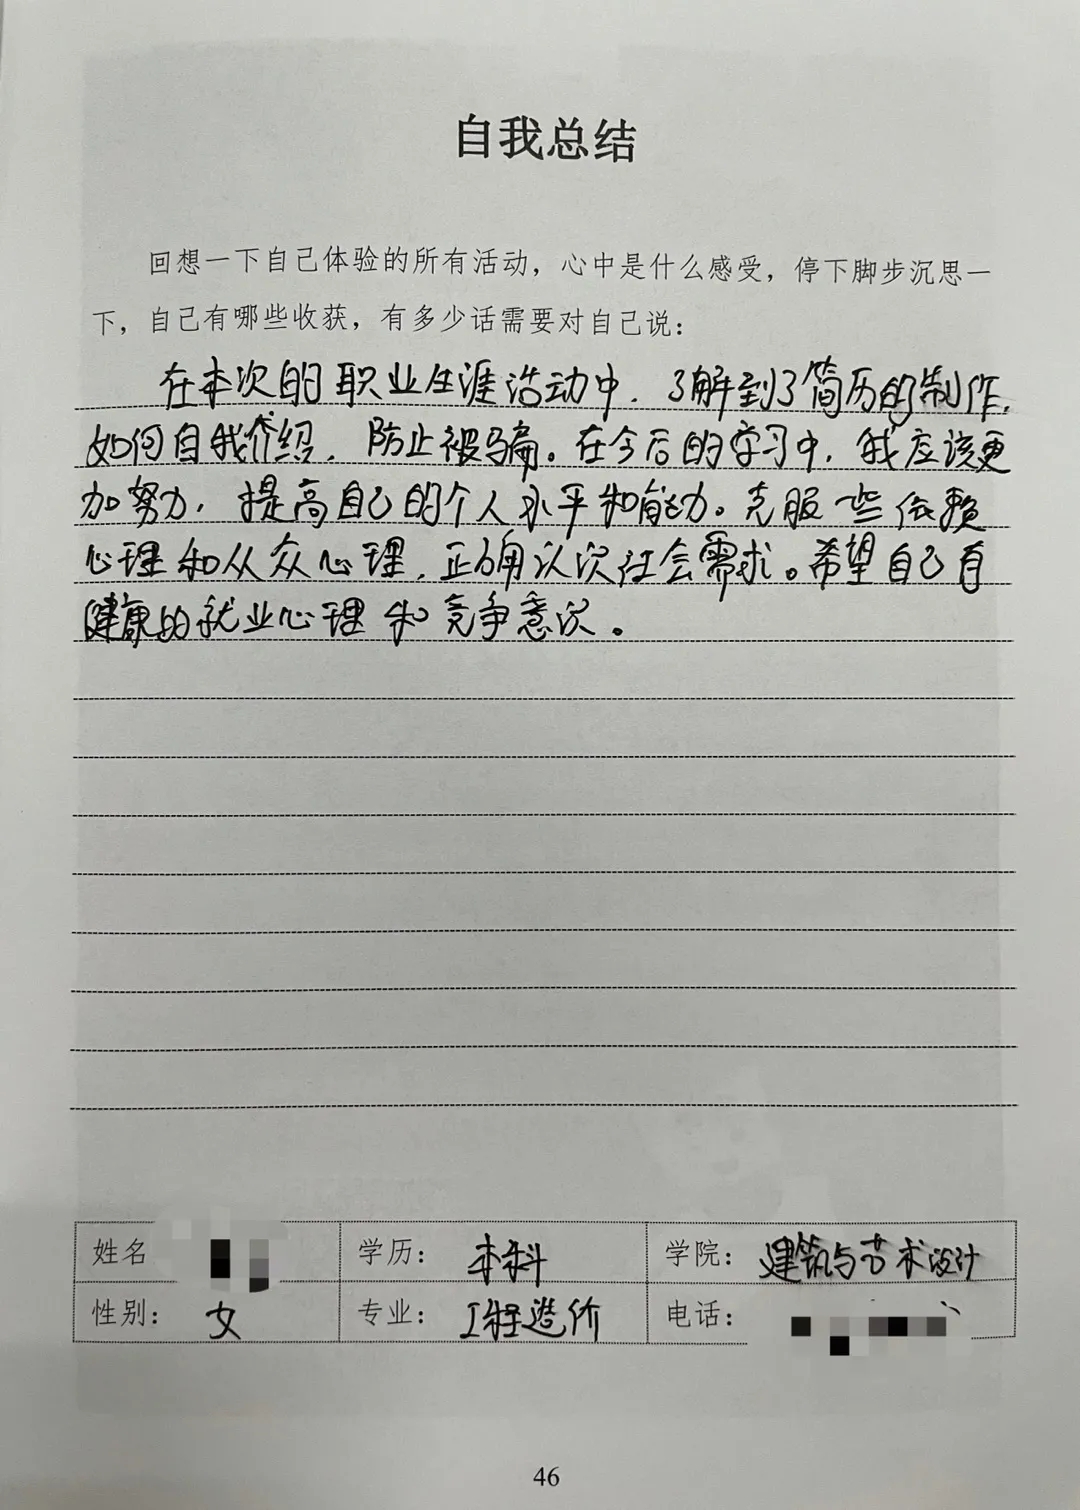 自我总结
回想一下自己体验的所有活动，心中是什么感受，停下脚步沉思一
下，自己有哪些收获，有多少话需要对自己说：
在本次的职业生涯活动中．了解到了简历的制作，
如何自我介绍．防止被骗。在今后的学习中，我应该更
加努力，提高自己的个人水平和能力。克服一些依赖
心理和从众心理．正确认次社会需求。希望自己有
健康的就业心理和竞争意识。
姓名 学历：本科 学院：建筑与艺术设计
性别：女 专业：工程造价 电话：
46